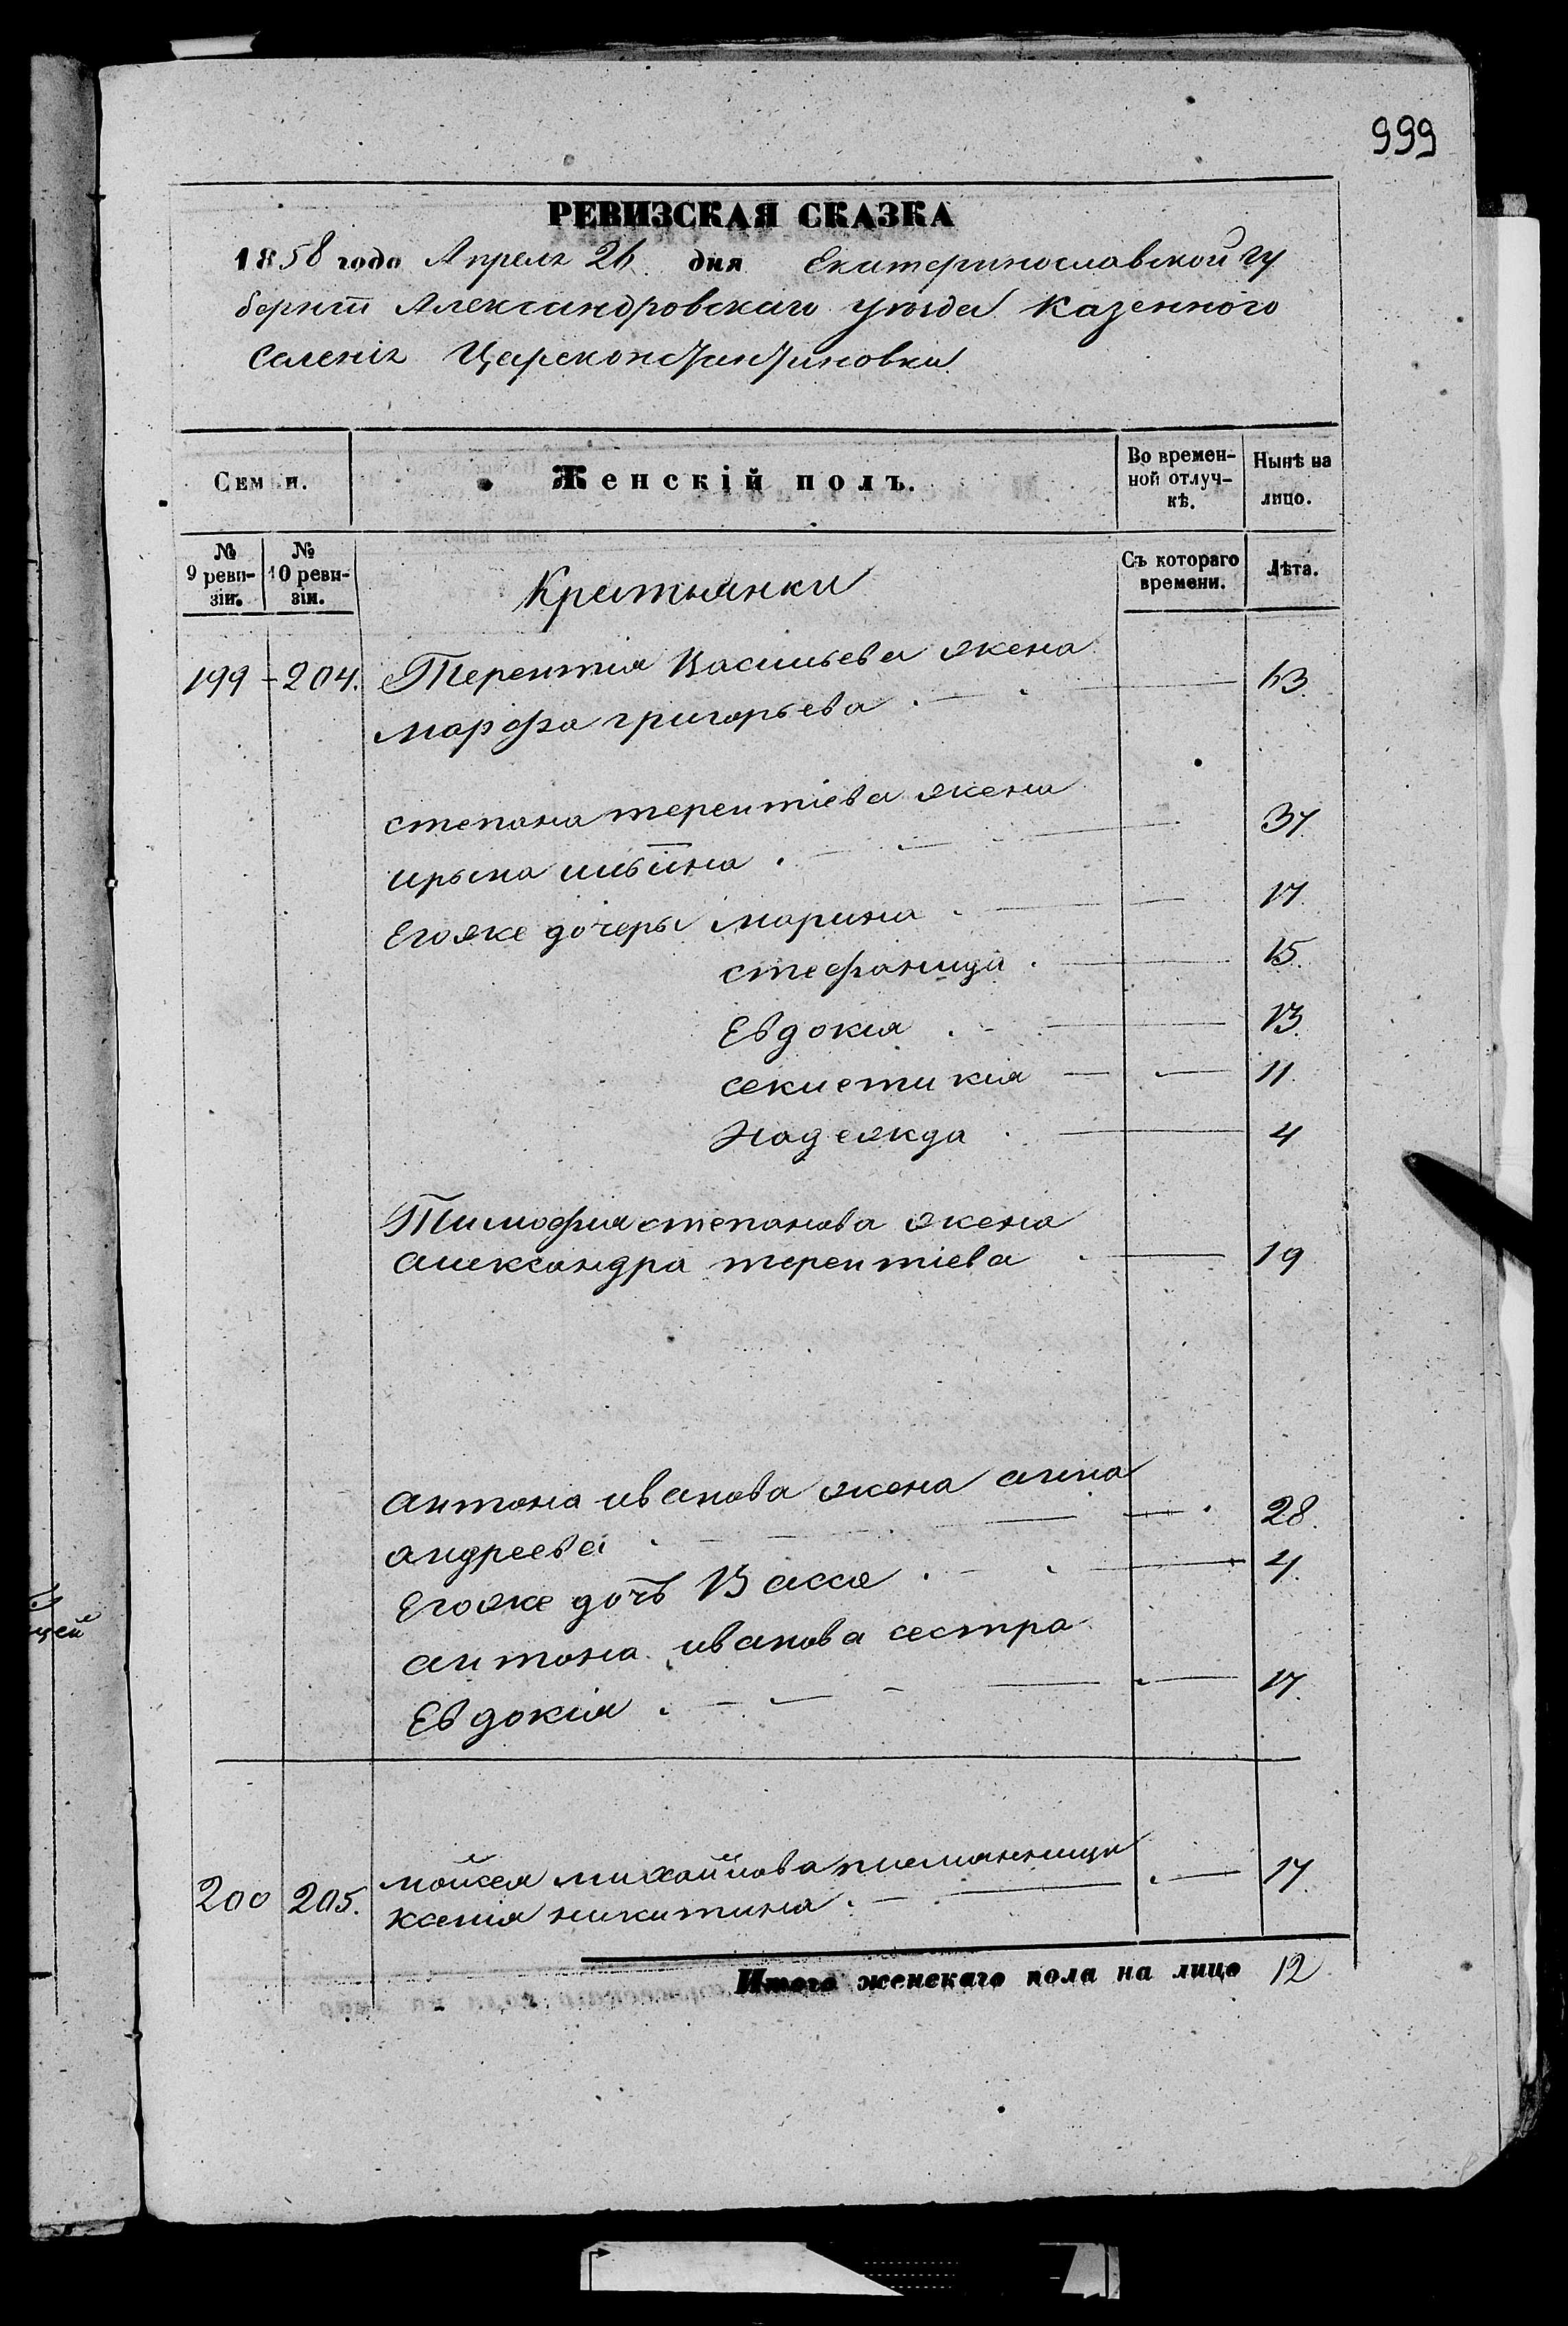 999
РЕВИЗСКАЯ СКАЗКА
1858 года Апреля 26 дня Екатеринославской гу
берніи Александровскаго уѣзда казенного
Селенія Цареконстантиновки
Семьи.
Женскій полъ.
Во времен-
ной отлуч-
кѣ.
Нынѣ на
лицо.
№
9 реви-
зіи.
№
10 реви-
зіи.
Крестьянки
Съ котораго
времени.
Лѣта.
199 - 204. Терентія Васильева жена
марфа григорьева 63.
степана терентіева жена
ирына ильина 37.
Егоже дочеры марина 17.
стефанида 15.
Евдокия 13.
секлетикия 11.
Надежда 4
Тимофия степанова жена
александра терентіева 19
антона иванова жена анна
андреева 28.
Егоже дочь Васса 4.
антона иванова сестра
Евдокия 17.
200 205. мойсея михайлова племянница
ксения никитина 17.
Итого женскаго пола на лицо 12
цей